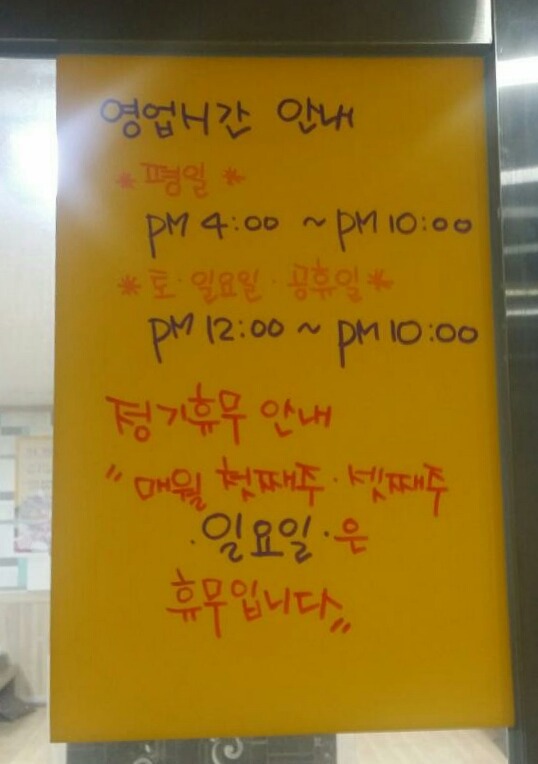 영업시간 안내
*평일*
PM 4:00 ~ PM 10:00
*토·일요일·공휴일*
PM 12:00 ~ PM 10:00
정기휴무 안내
"매월 첫째주·셋째주
·일요일·은
휴무입니다"